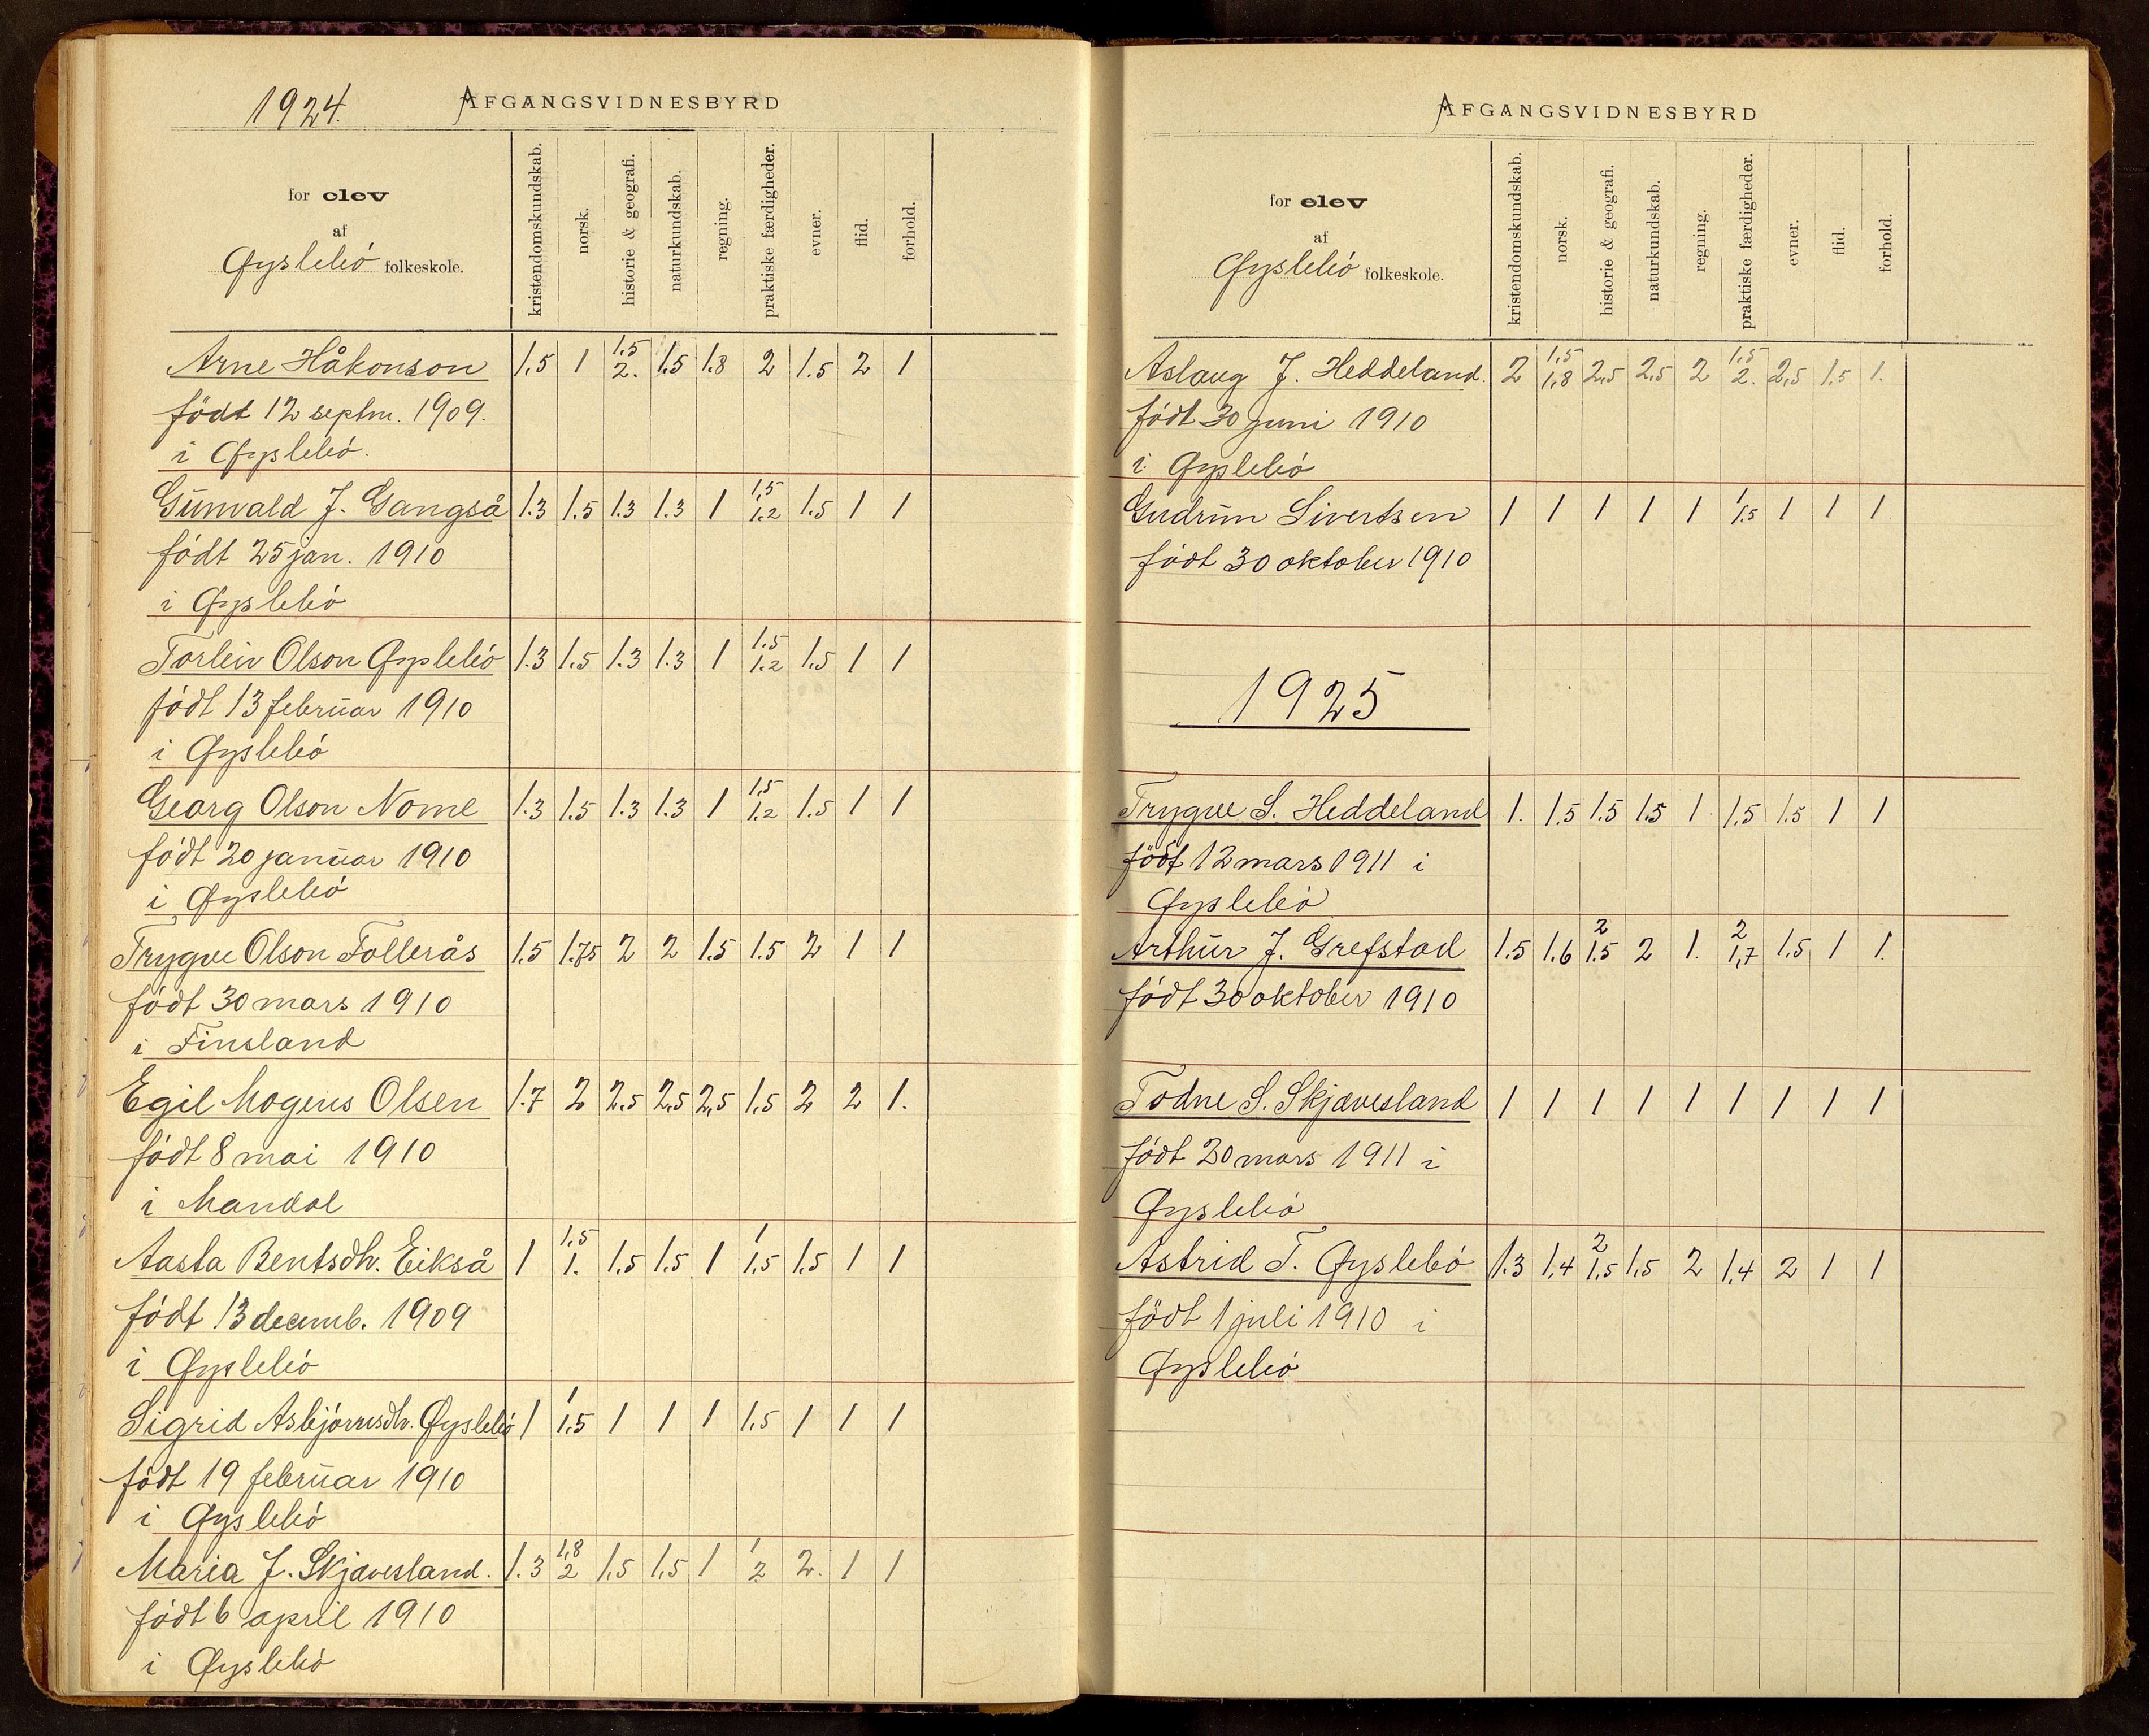 1924.
AFGANGSVIDNESBYRD
for elev
af
Øyslebö folkeskole.
kristendomskundskab.
norsk.
historie & geografi.
naturkundskab.
regning.
praktiske færdigheder.
evner.
flid.
forhold.
Arne Håkonson 1.5 1 1,5 2. 1.5 1.8 2 1.5 2 1
född 12 septm. 1909.
i Øyslebö.
Gunvald J. Gangså 1.3 1.5 1.3 1.3 1 1,5 1.2 1.5 1 1
född 25 jan. 1910
i Øyslebö
Torleiv Olson Øyslebö 1.3 1.5 1.3 1.3 1 1.5 1.2 1.5 1 1
född 13 februar 1910
i Øyslebö
Georg Olson Nome 1.3 1.5 1.3 1.3 1 1,5 1.2 1.5 1 1
född 20 januar 1910
i Øyslebö
Trygve Olson Follerås 1.5 1.75 2 2 1.5 1.5 2 1 1
född 30 mars 1910
i Finsland
Egil Mogens Olsen 1.7 2 2.5 2,5 2,5 1,5 2 2 1.
född 8 mai 1910
i Mandal
Aasta Bentsdtr. Eikså 1 1,5 1. 1.5 1.5 1 1 1,5 1.5 1 1
född 13 decemb. 1909
i Øyslebö
Sigrid Asbjörnsdtr. Øyslebö 1 1 1.5 1 1 1 1.5 1 1 1
född 19 februar 1910
i Øyslebö
Maria J. Skjævesland. 1.3 1,8 2 1,5 1,5 1 1 2 2. 1 1
född 6 april 1910
i Øyslebö
AFGANGSVIDNESBYRD
for elev
af
Øyslebö folkeskole.
kristendomskundskab.
norsk.
historie & geografi.
naturkundskab.
regning.
praktiske færdigheder.
evner.
flid.
forhold.
Aslaug J. Heddeland. 2 1,5 1,8 2,5 2,5 2 1,5 2. 2,5 1.5 1.
född 30 juni 1910
i Øyslebö
Gudrun Sivertsen 1 1 1 1 1 1 1.5 1 1 1
född 30 oktober 1910
1925
Trygve S. Heddeland 1. 1.5 1.5 1.5 1 1.5 1.5 1 1
född 12 mars 1911 i
Øyslebö
Arthur J. Grefstad 1.5 1.6 2 1.5 2 1. 2 1,7 1.5 1 1.
född 30 oktober 1910
Todne S. Skjævesland 1 1 1 1 1 1 1 1 1
född 20 mars 1911 i
Øyslebö
Astrid T. Øyslebö 1.3 1,4 2 1,5 1,5 2 1,4 2 1 1
född 1 juli 1910 i
Øyslebö